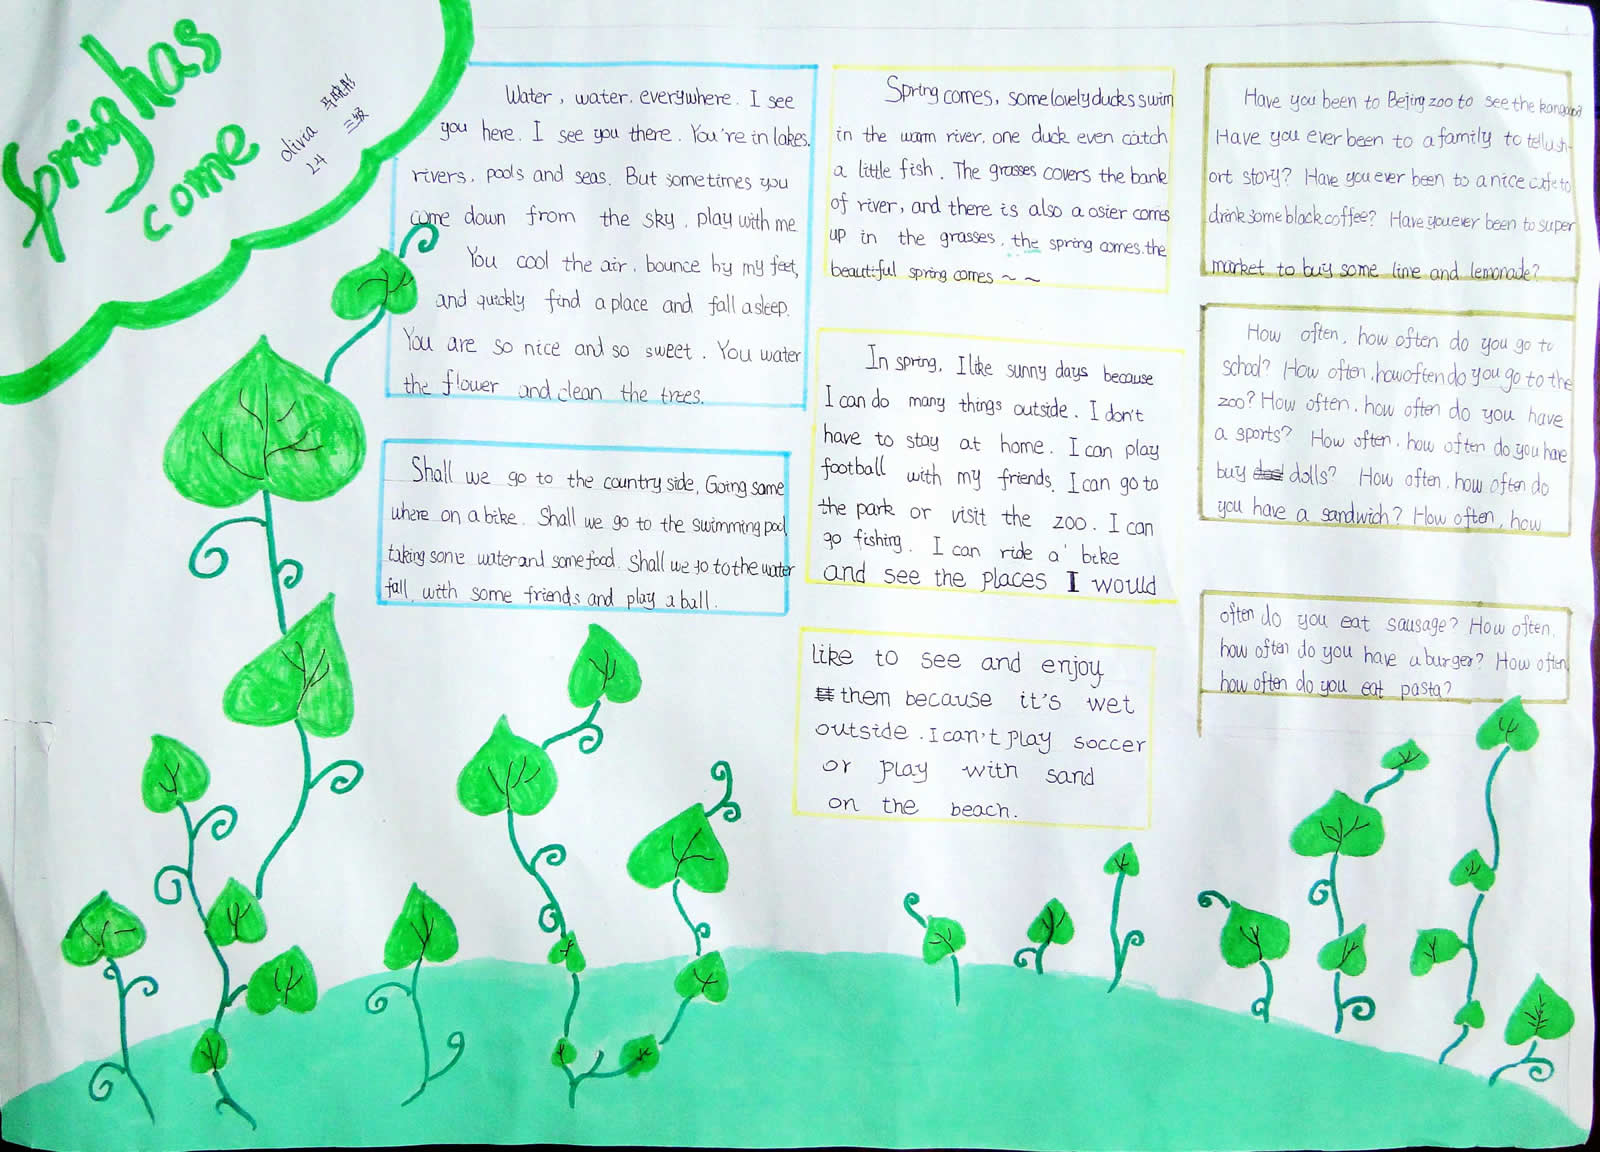 Spring has
come
olivia
24
三级
Water, water. everywhere. I see
you here. I see you there. You're in lakes.
rivers. pools and seas. But sometimes you
come down from the sky. play with me
You cool the air. bounce by my feet,
and quickly find a place and fall asleep.
You are so nice and so sweet. You water
the flower and clean the trees.
Shall we go to the country side, Going some
where on a bike. Shall we go to the swimming pool
taking some water and some food. Shall we fo to the water
fall. with some friends and play a ball.
Spring comes, some lovely ducks swim
in the warm river. one duck even catch
a little fish. The grasses covers the bank
of river, and there is also a osier comes
up in the grasses. the spring comes. the
beautiful spring comes ~ ~
In spring, I like sunny days because
I can do many things outside. I don't
have to stay at home. I can play
football with my friends. I can go to
the park or visit the zoo. I can
go fishing. I can ride a bike
and see the places I would
like to see and enjoy
them because it's wet
outside. I can't play soccer
or play with sand
on the beach.
Have you been to Bejing zoo to see the
Have you ever been to a family to tell ush-
ort story? Have you ever been to a nice cafe to
drink some black coffee? Have you ever been to super
market to buy some line and lemonade?
How often, how often do you go to
school? How often, how often do you go to the
zoo? How often, how often do you have
a sports? How often, how often do you have
buy dolls? How often, how often do
you have a sandwich? How often, how
often do you eat sausage? How often,
how often do you have a burger? How often
how often do you eat pasta?